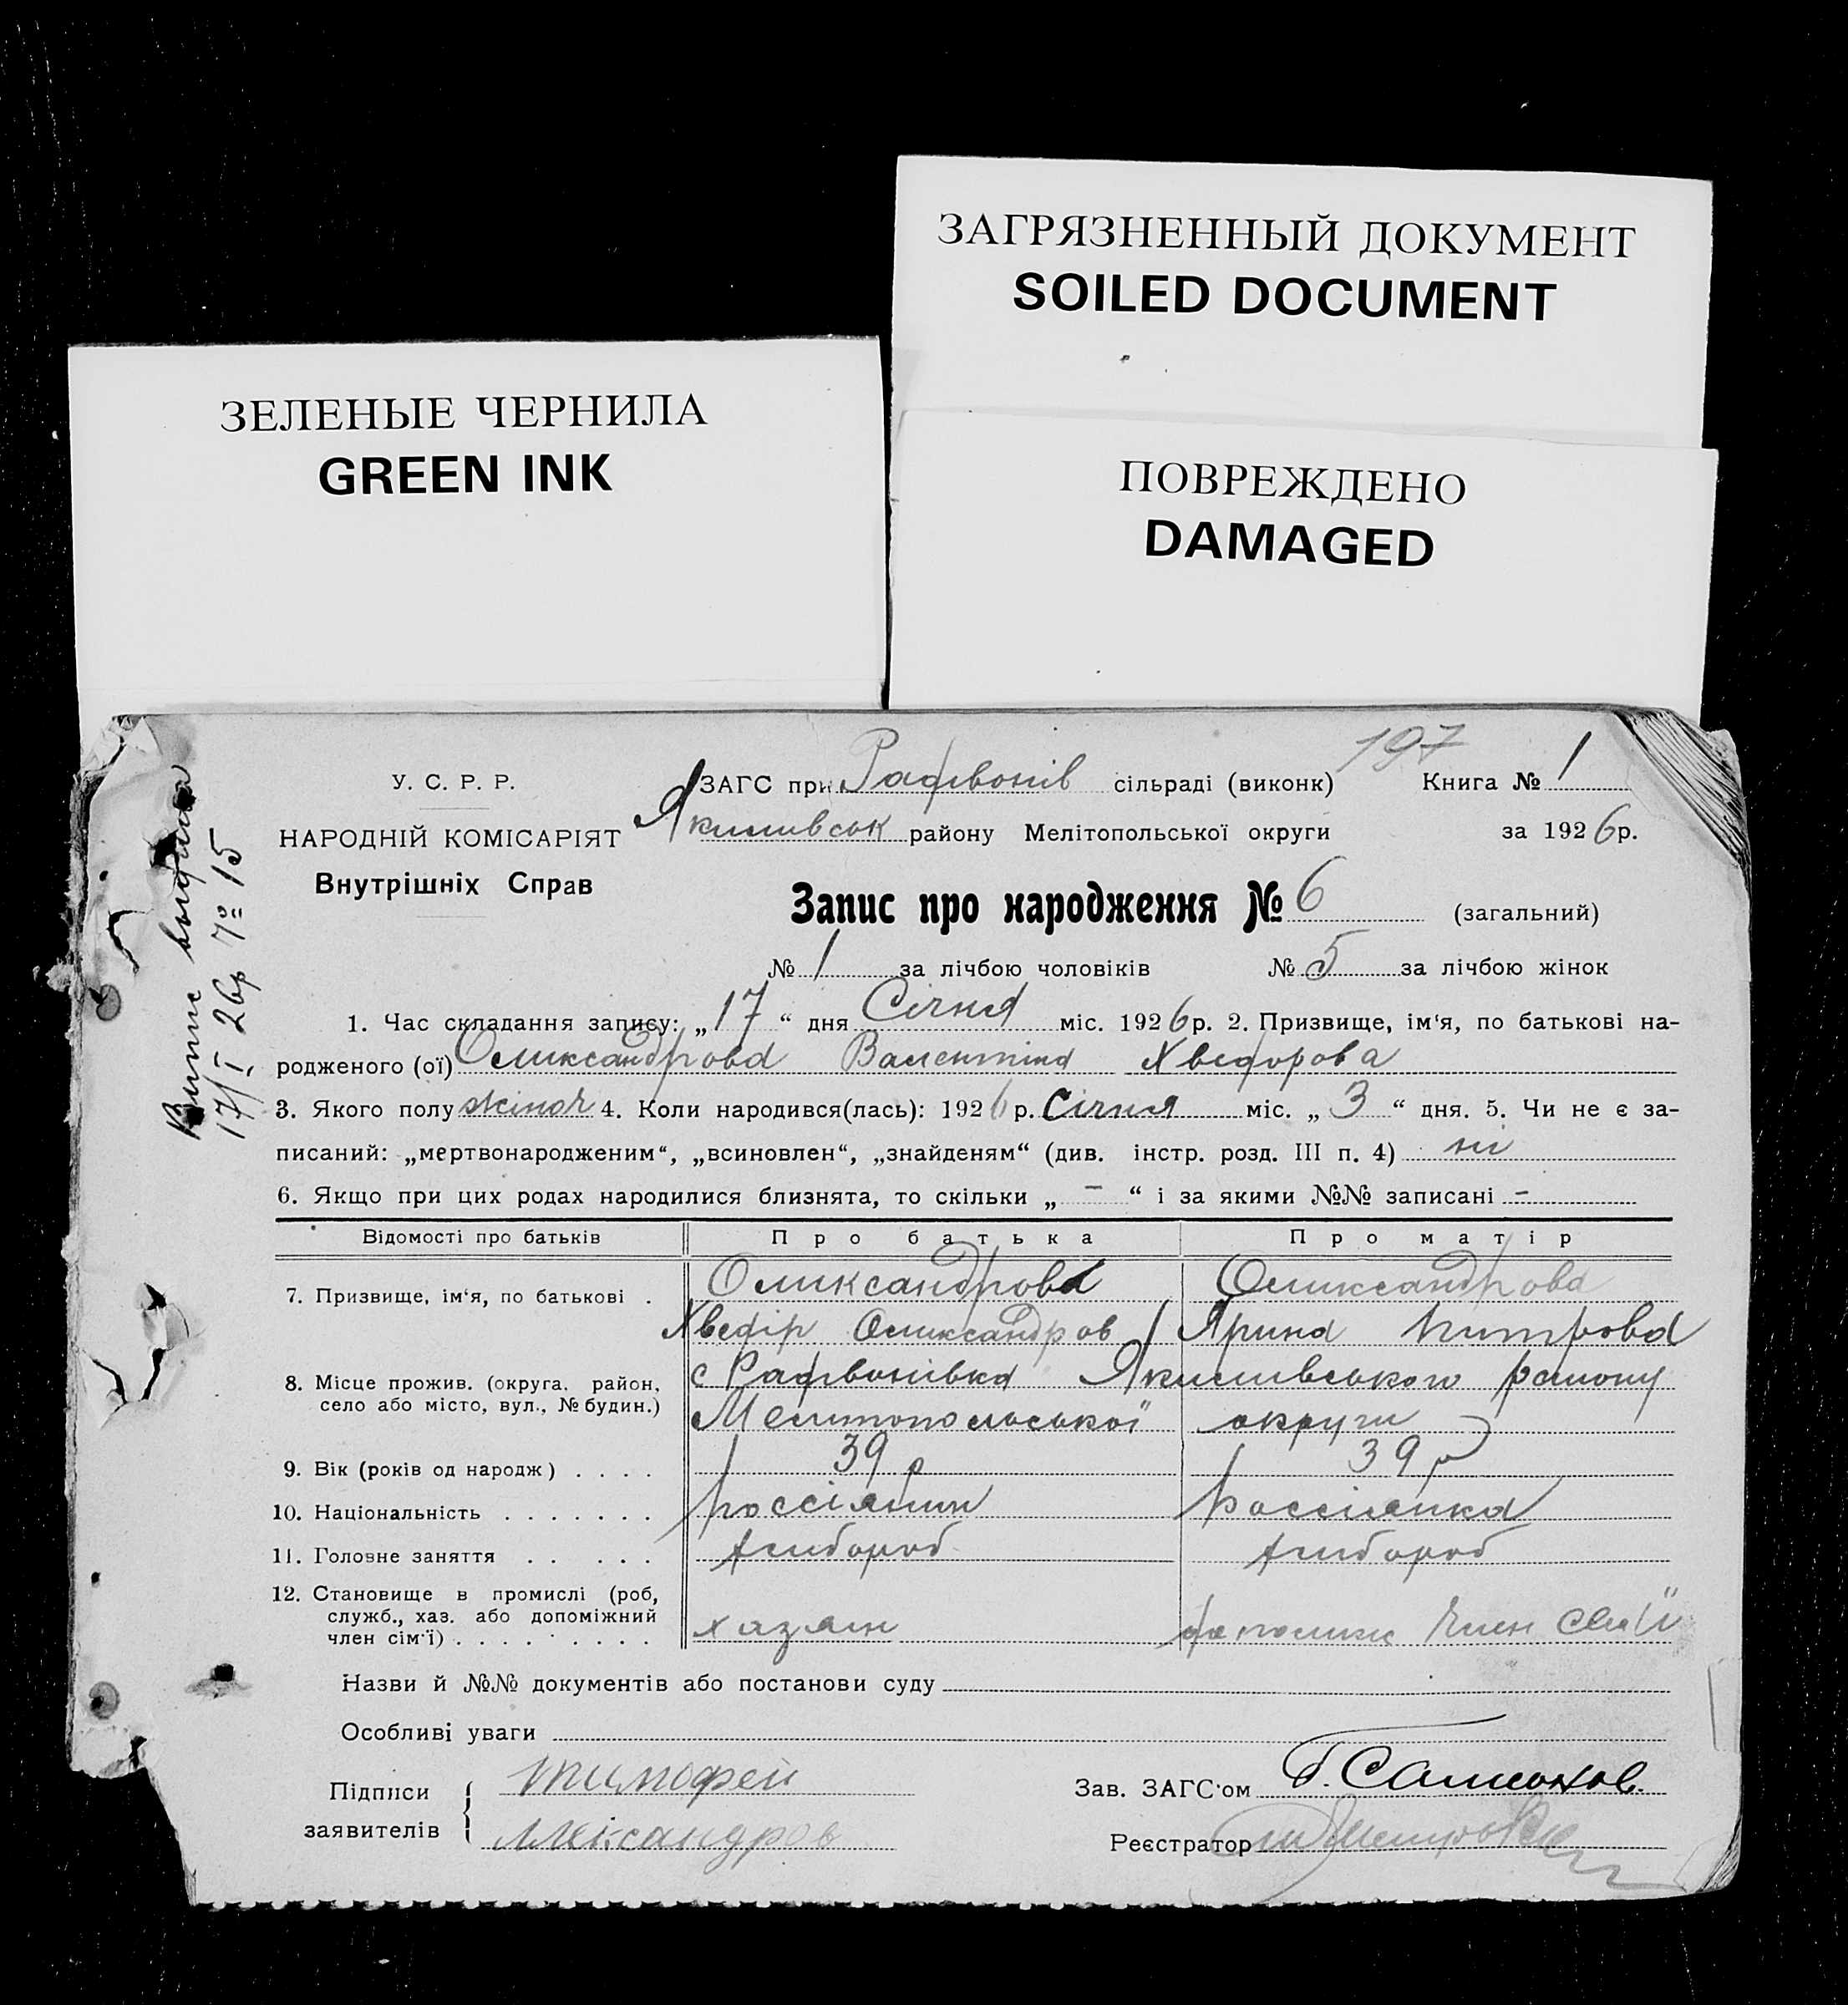 ЗАГРЯЗНЕННЫЙ ДОКУМЕНТ
SOILED DOCUMENT
ЗЕЛЕНЫЕ ЧЕРНИЛА
GREEN INK
ПОВРЕЖДЕНО
DAMAGED
197
У. С. Р. Р.
НАРОДНІЙ КОМІСАРІЯТ
Внутрішніх Справ
ЗАГС при Рафвонів сільраді (виконк) Книга № 1
Якимивськ району Мелітопольської округи за 1926 р.
Запис про народження № 6 (загальний)
№ 1 за лічбою чоловіків № 5 за лічбою жінок
Випис
17/I 26р 7º 15
1. Час складання запису: „17“ дня Січня міс. 1926 р. 2. Призвище, ім‘я, по батькові на-
родженого (ої) Оликсандрова Валентіна Хведорова
3. Якого полу жіноч 4. Коли народився(лась): 1926 р. Січня міс. „3“ дня. 5. Чи не є за-
писаний: „мертвонародженим“, „всиновлен“, „знайденям“ (див. інстр. розд. III п. 4) ні
6. Якщо при цих родах народилися близнята, то скільки „ - “ і за якими №№ записані -
Відомості про батьків Про батька Про матір
7. Призвище, ім‘я, по батькові . Оликсандрова Оликсандрова
Хведір Оликсандров Ярина Питрова
8. Місце прожив. (округа, район, село або місто, вул., № будин.) с Рафвонівка Якимивського району
Мелитопольської округи
9. Вік (років од народж) . . . . 39 р 39 р
10. Національність . . . . . . . россіянин россіянка
11. Головне заняття . . . . . хлибороб хлибороб
12. Становище в промислі (роб,
служб., хаз. або допоміжний
член сім‘ї) . . . . . . . . . хазяин член сем'ї
Назви й №№ документів або постанови суду
Особливі уваги
Підписи
заявителів
Тимофей
Александров
Зав. ЗАГС‘ом
Реєстратор